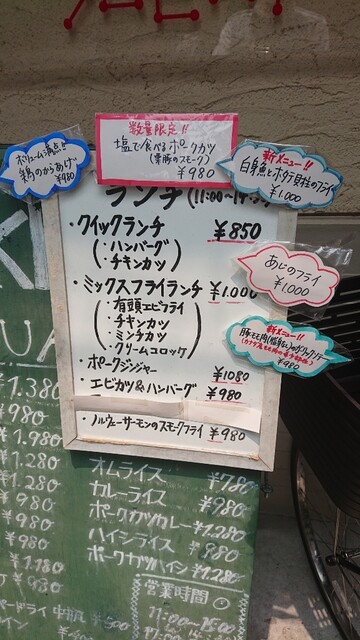 数量限定!!
塩で食べるポークカツ
¥980
ボリューム満点!!
鶏のからあげ
¥980
新メニュー!!
白身魚とホタテ貝柱のフライ
¥1.000
ランチ
・クイックランチ ¥850
・ハンバーグ
・チキンカツ
・ミックスフライランチ ¥1.000
・有頭エビフライ
・チキンカツ
・ミンチカツ
・クリームコロッケ
・ポークジンジャー ¥1080
・エビカツ&ハンバーグ ¥980
・ノルウェーサーモンのスモークフライ ¥980
あじのフライ
¥1.000
新メニュー!!
¥980
1.380
980
1.980
¥1.280
¥1.280
¥980
¥980
¥980
¥1.180
¥980
オムライス ¥780
カレーライス ¥980
ポークカツカレー ¥1.280
ハイシライス ¥880
ポークカツハイシ ¥1.280
¥500
営業時間